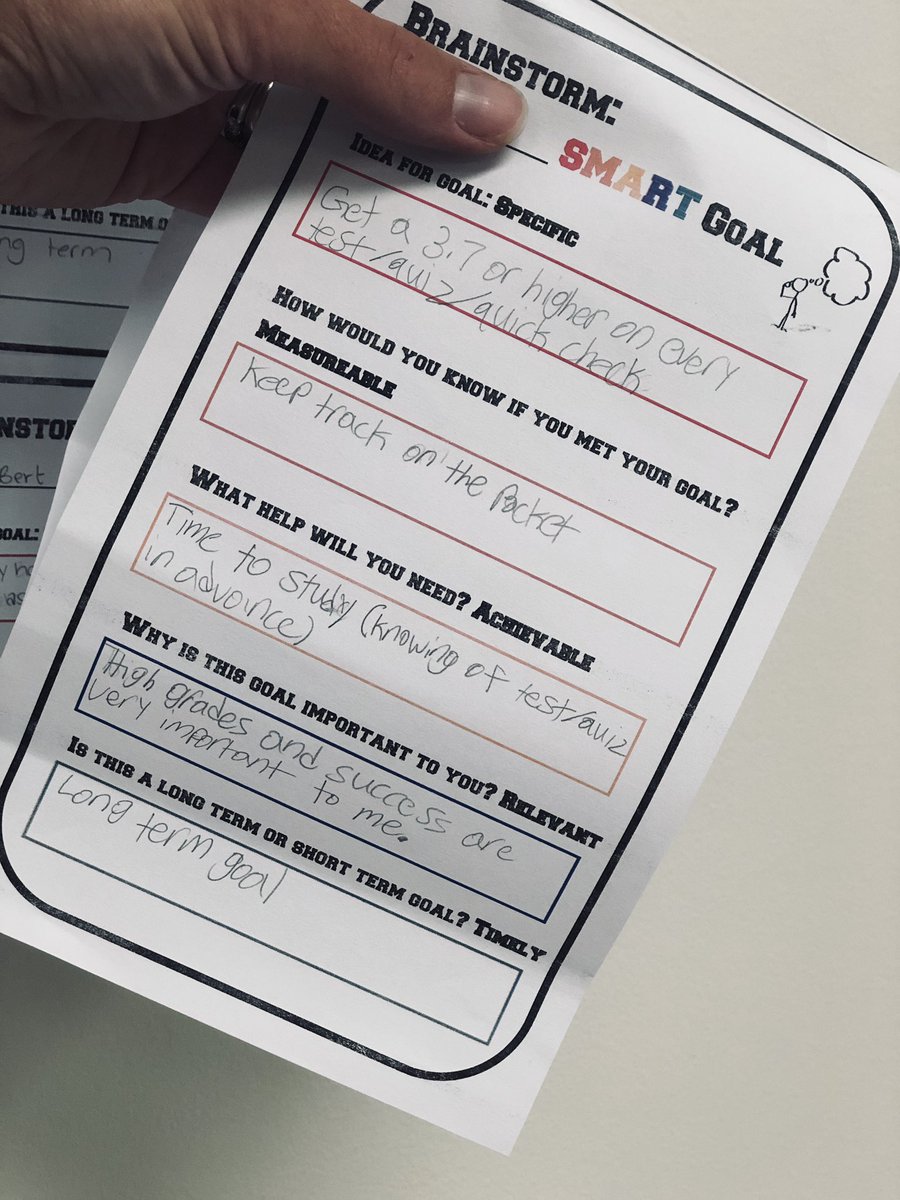 BRAINSTORM:
SMART GOAL
IDEA FOR GOAL: SPECIFIC
Get a 3.7 or higher on every
test/quiz/quick check
HOW WOULD YOU KNOW IF YOU MET YOUR GOAL?
MEASUREABLE
Keep track on the Packet
WHAT HELP WILL YOU NEED? ACHIEVABLE
Time to study (knowing of test/quiz
in advance)
WHY IS THIS GOAL IMPORTANT TO YOU? RELEVANT
High grades and success are
very important to me.
IS THIS A LONG TERM OR SHORT TERM GOAL? TIMELY
Long term goal
THIS A LONG TERM O
ng term
NSTO
Bert
GOAL: